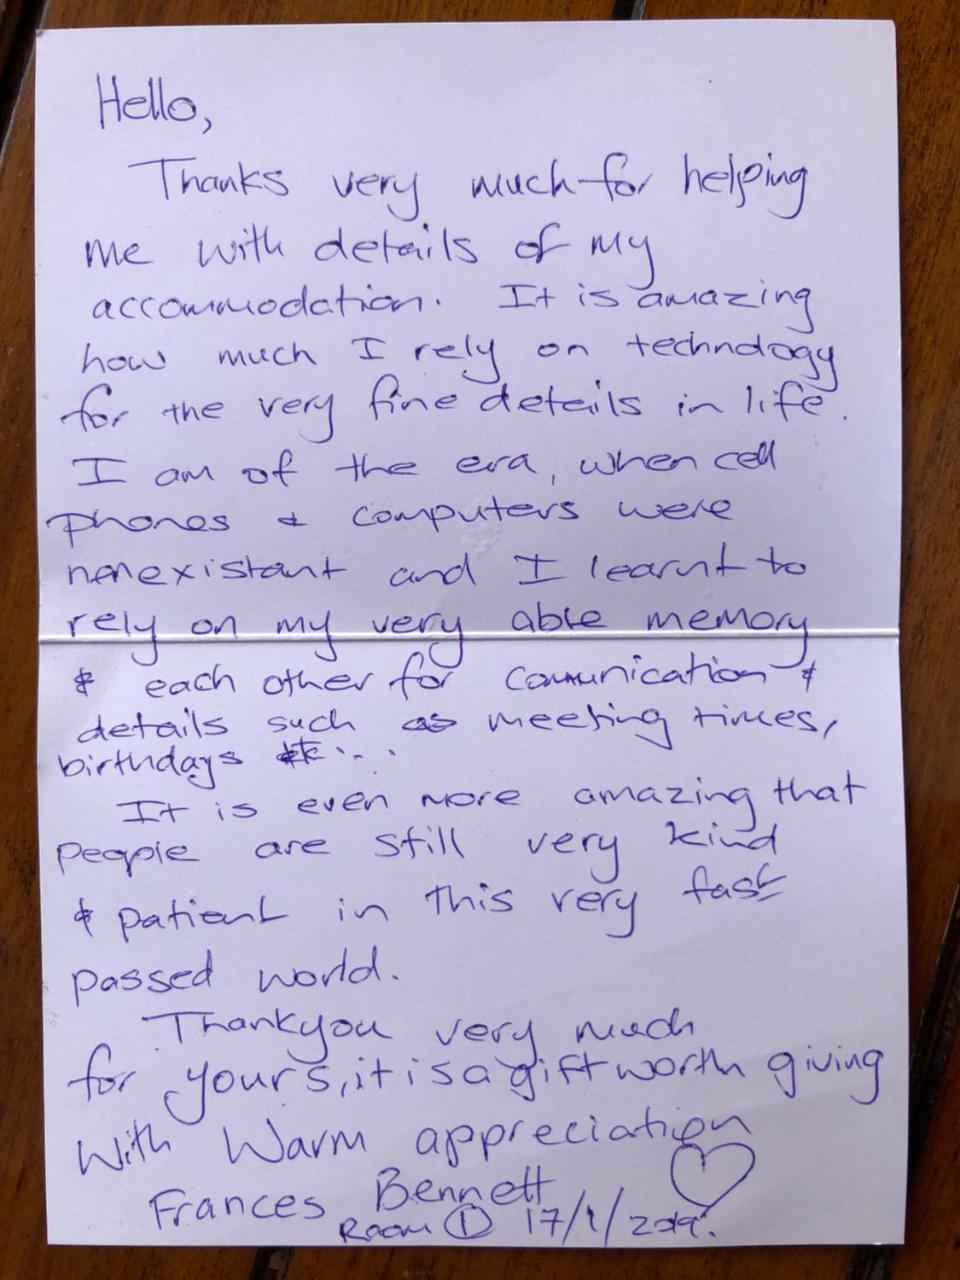 Hello,
Thanks very much for helping
me with details of my
accommodation. It is amazing
how much I rely on technology
for the very fine details in life.
I am of the era, when cell
phones & computers were
nonexistant and I learnt to
rely on my very able memory
& each other for communication &
details such as meeting times,
birthdays etc...
It is even more amazing that
people are still very kind
& patient in this very fast
passed world.
Thankyou very much
for yours, it is a gift worth giving
With Warm appreciation
Frances Bennett
Room 1 17/1/2019.